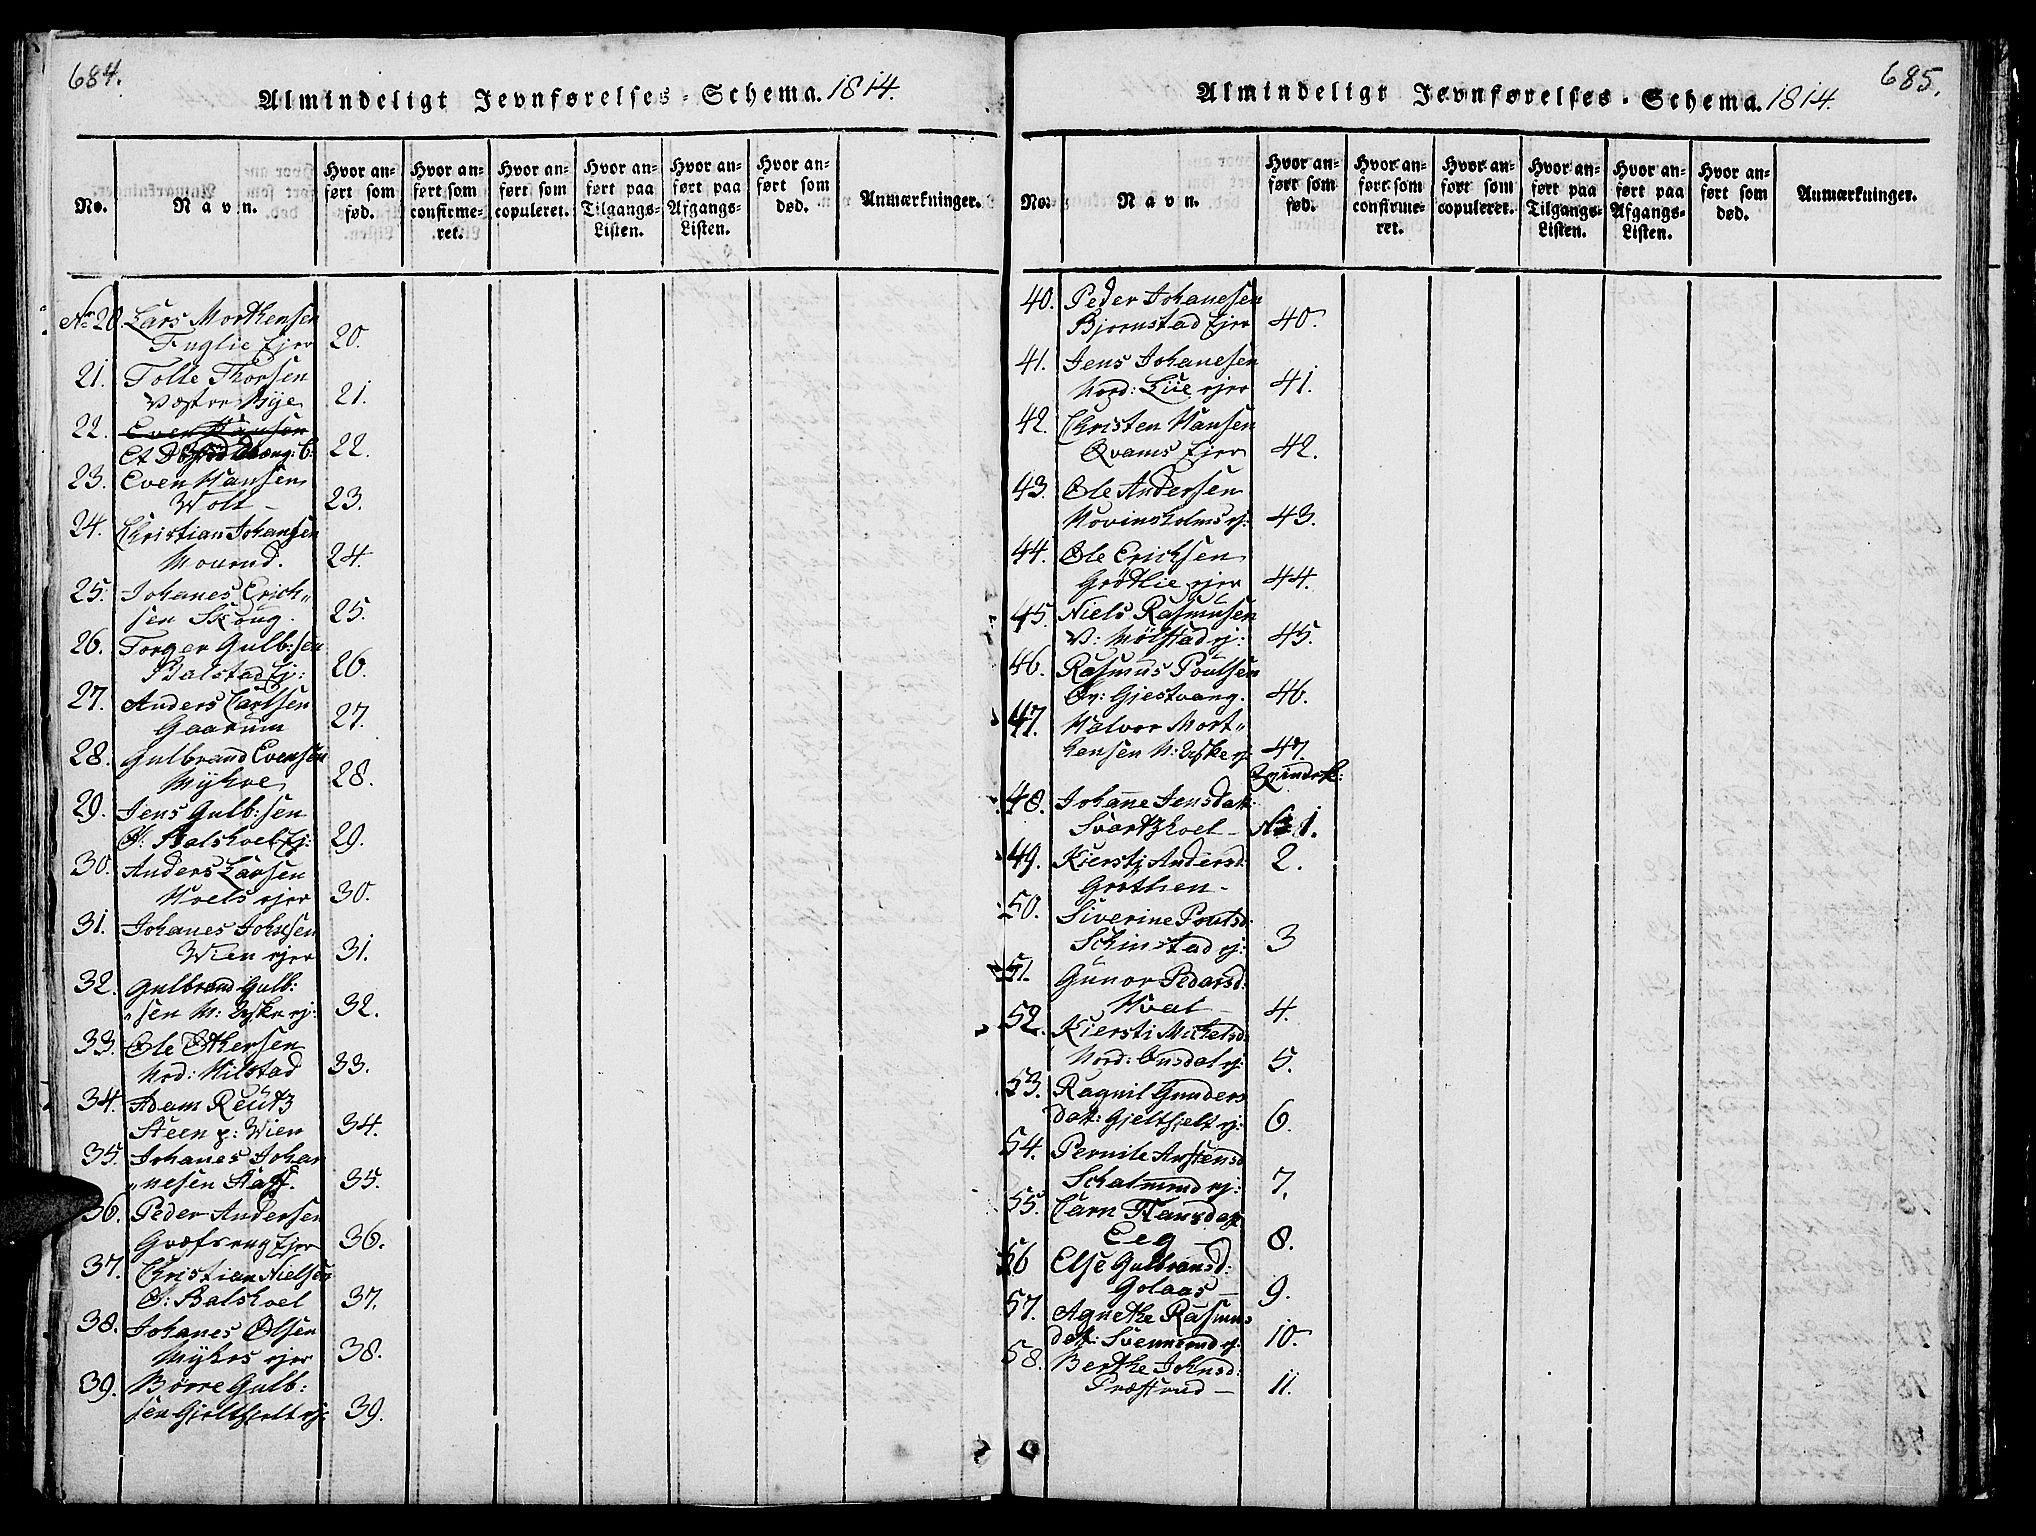 684.
Almindeligt Jevnførelses-Schema. 1814.
No.
Navn.
Hvor anført som fød.
Hvor anført som confirmeret.
Hvor anført som copuleret.
Hvor anført paa Tilgangs-Listen.
Hvor anført paa Afgangs-Listen.
Hvor anført som død.
Anmærkninger.
No. 20 Lars Morthensen
Fuglie Ejer 20.
21. Tolle Thorsen
Vestre Bye 21.
22. Even Hansen
Et 22.
23. Even Hansen
Wolt - 23.
24. Christian Johansen
Mourud. 24.
25. Johanes Erich„
sen Skoug. 25.
26. Torger Gulb:sen
Balstad Ej: 26.
27. Anders Carlsen
Gaarum 27.
28. Gulbrand Evensen
Myhre 28.
29. Jens Gulb:sen
Ø: Balshoel Ej: 29.
30. Anders Larsen
Hoels ejer 30.
31. Johanes Johnsen
Wien ejer 31.
32. Gulbrand Gulb:
„sen N: Ufske ej: 32.
33. Ole Othersen
Nod: Hilstad 33.
34. Adam Reütz
Steen p: Wien 34.
35. Johanes Johan
„nesen Staff. 35.
36. Peder Andersen
Græfseng Ejer 36.
37. Christian Nielsen
Ø: Balshoel 37.
38. Johanes Olsen
Myhrs ejer 38.
39. Børre Gulb:
sen Gjeltfjelt ej: 39.
685.
Almindeligt Jevnførelses-Schema. 1814.
No.
Navn.
Hvor anført som fød.
Hvor anført som confirmeret.
Hvor anført som copuleret.
Hvor anført paa Tilgangs-Listen.
Hvor anført paa Afgangs-Listen.
Hvor anført som død.
Anmærkninger.
40. Peder Johanesen
Bjørnstad Ejer 40.
41. Jens Johanesen
Nord: Lüe ejer 41.
42. Christen Hansen
Qvams Ejer 42.
43. Ole Andersen
Hovinsholms ej: 43.
44. Ole Erichsen
Grøtlie ejer 44.
45. Niels Rasmusen
V: Mølstad ej: 45.
46. Rasmus Poulsen
Øv: Gjestvang. 46.
47. Halvor Mort„
hensen N: Ufske ej 47.
Qvindek:
48. Johanne Jensdat:
Svartzhoel - No. 1.
49. Kiersti Andersd: 2.
Grothen -
50. Siverine Poulsd:
Schinstad ej: 3
51. Gunor Pedersd:
Hval - 4.
52. Kiersti Michelsd:
Nord: Onsdal ej: 5.
53. Ragnil Gunders
dat: Gjeltfjelt ej: 6.
54. Pernile Arstensd
Schalmrud ej: 7.
55. Carn Hansdat
Eeg - 8.
56 Else Gulbransd:
Golaas - 9.
57. Agnethe Rasmus
dat: Svennerud ej: 10.
58. Berthe Johnsd:
Præstrud - 11.